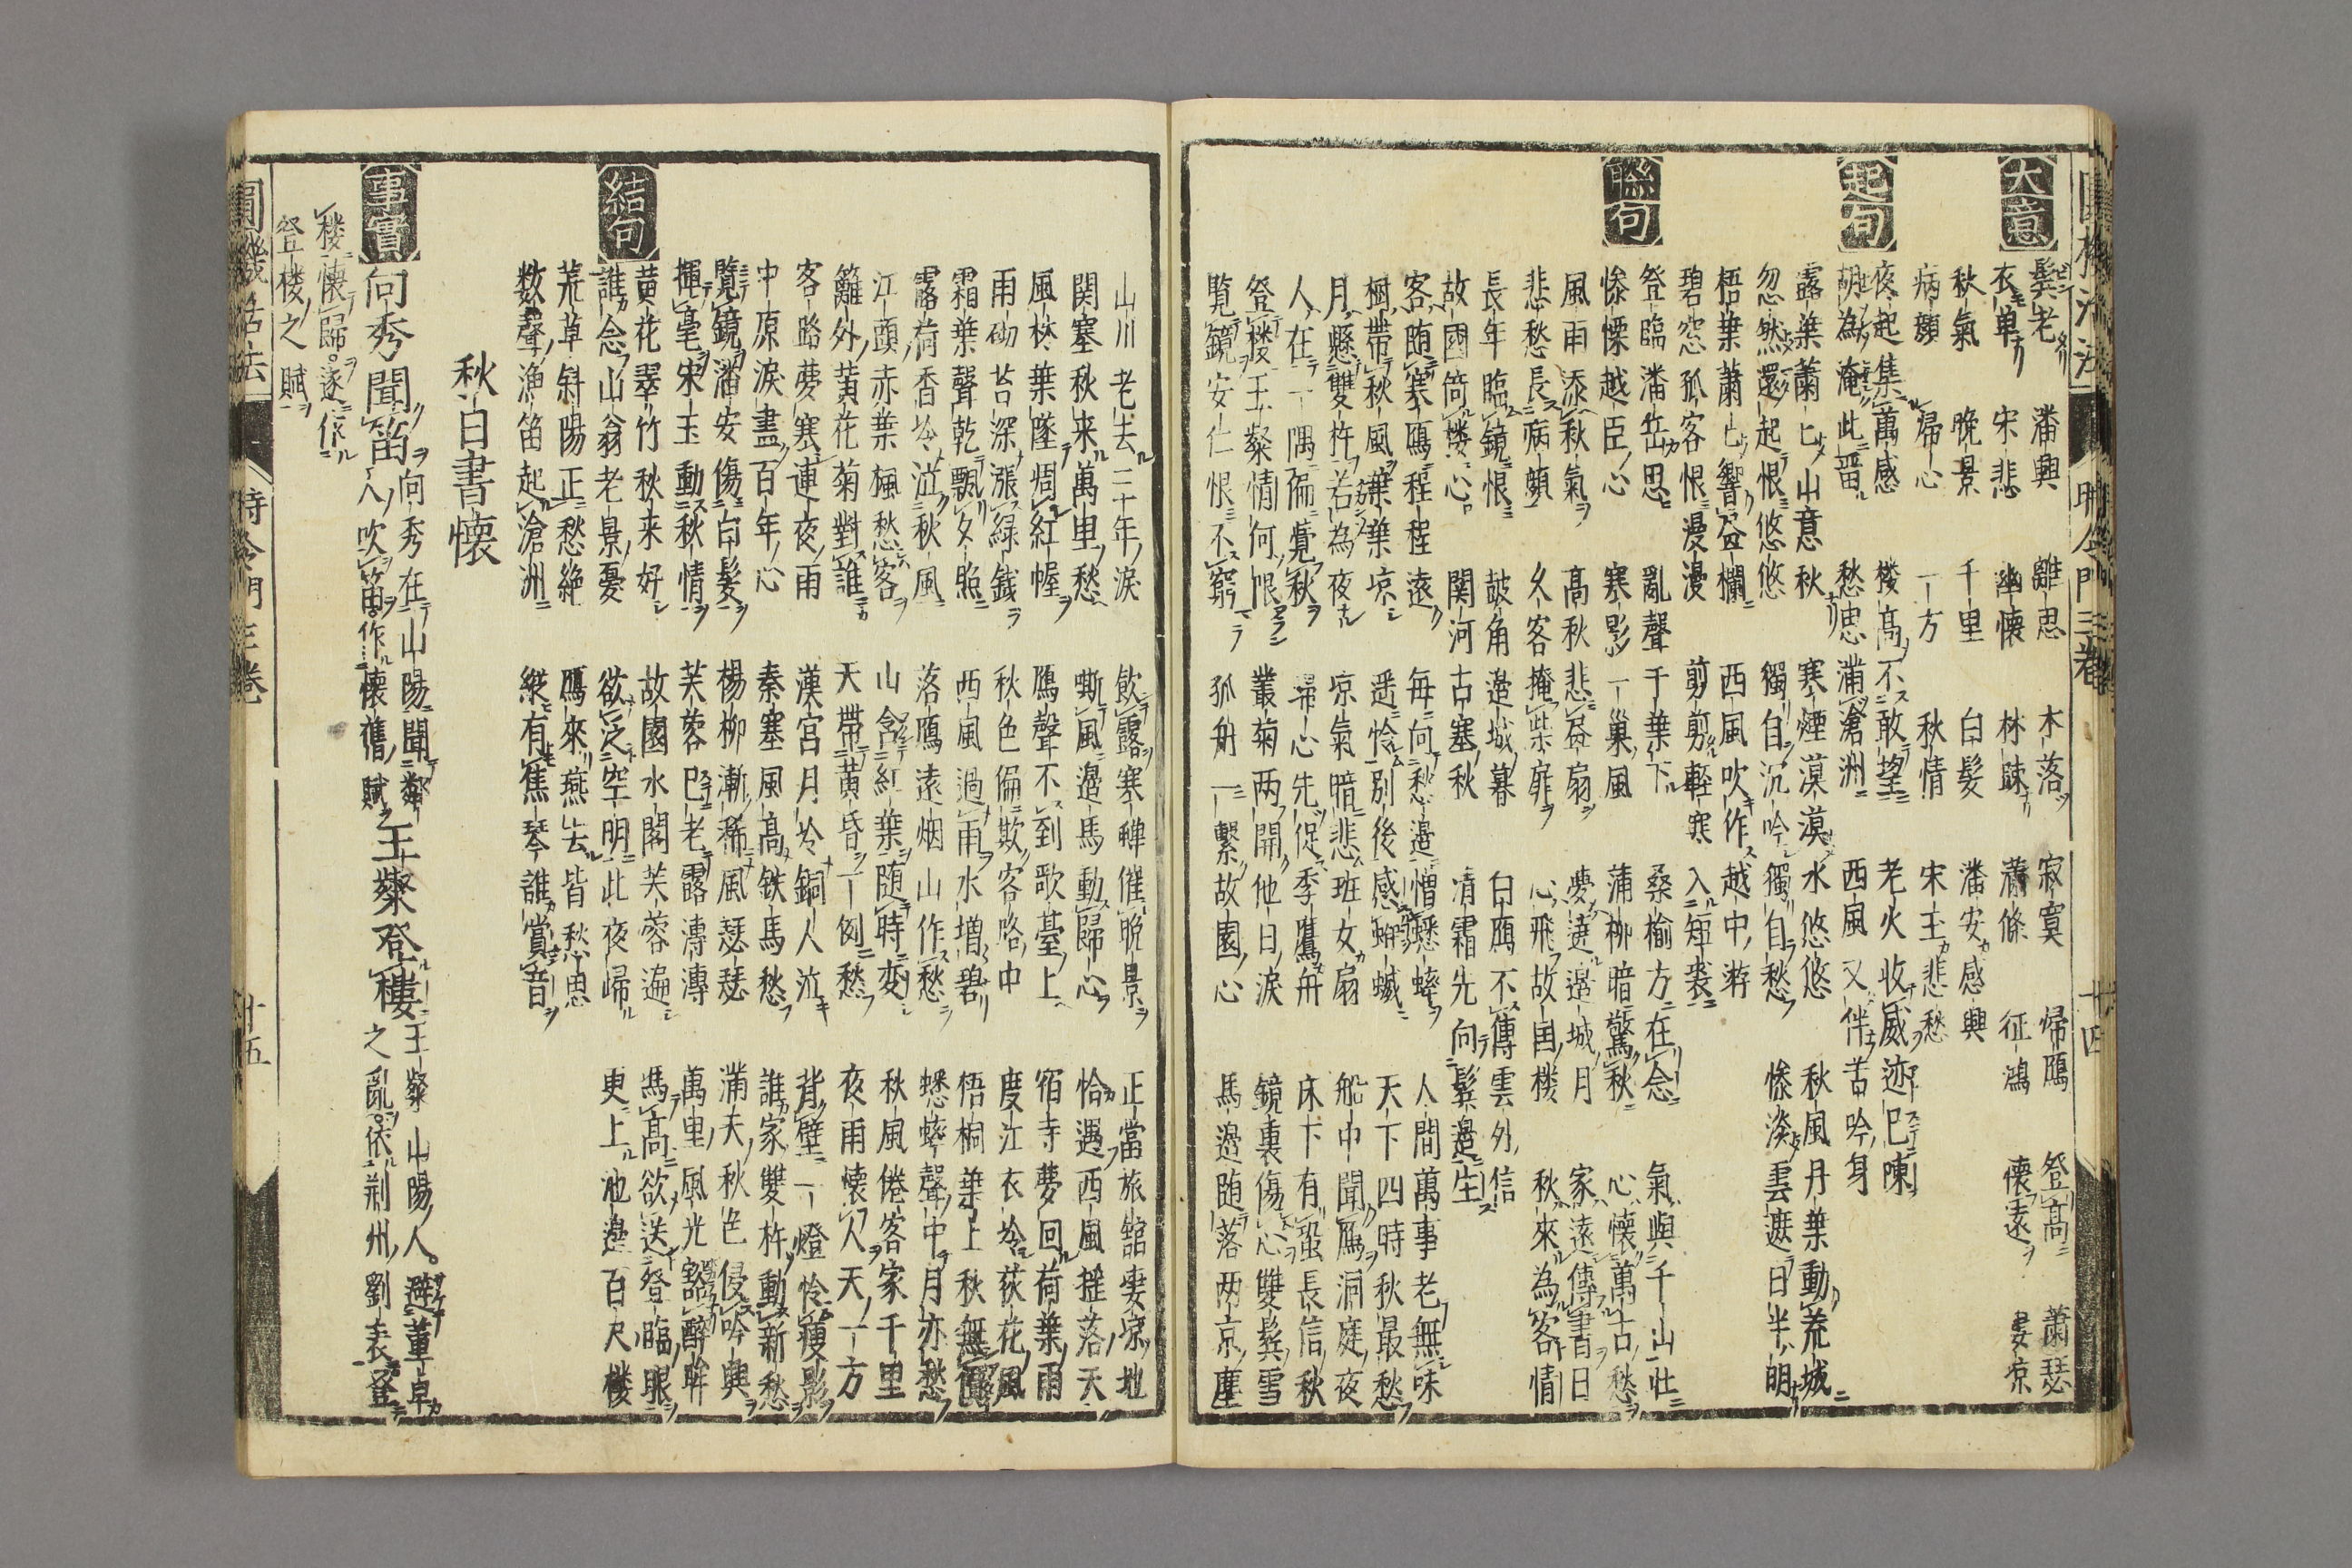 大意
鬂老 潘興 離思 木落 寂寞 帰鴈 登高 蕭瑟
衣単 宋悲 幽懐 林踈 蕭條 征鴻 懐遠 凄凉
秋氣 晩景 千里 白髪 潘安感興
病顔 帰心 一方 秋情 宋玉悲愁
起句
夜起集萬感 楼高不敢望 老火收威迹已陳
胡為淹此畱 愁思滿滄洲 西風又伴苦吟身
露葉蕭〻山意秋 寒煙漠漠水悠悠 秋風丹葉動荒城
忽然還起恨悠悠 獨自沉吟獨自愁 惨淡雲遮日半明
梧葉蕭〻響益欄 西風吹作越中游
碧窓孤客恨漫漫 剪剪軽寒入短裘
聯句
登臨潘岳思 亂聲千葉下 桑榆方在念 氣與千山壮
惨慄越臣心 寒影一巢風 蒲柳暗驚秋 心懐萬古愁
風雨添秋氣 高秋悲益扇 夢遶邉城月 家遠傳書日
悲愁長病顔 久客掩柴扉 心飛故国楼 秋來為客情
長年臨鏡恨 皷角邉城暮 白鴈不傳雲外信
故國倚楼心 関河古塞秋 清霜先向鬂邉生
客随寒鴈程程遠 毎向愁邉憎蟋蟀 人間萬事老無味
樹帯秋風葉葉凉 遥怜別後感蛜蠘 天下四時秋最愁
月懸雙杵若為夜 凉氣暗悲班女扇 船中聞鴈洞庭夜
人在一隅偏覺秋 帰心先促季鷹舟 床下有蛩長信秋
登楼王粲情何恨 叢菊两開他日淚 鏡裏傷心雙鬂雪
覧鏡安仁恨不窮 孤舟一繋故園心 馬邉随落两京塵
山川老去二十年淚 飲露寒蝉催晩景 正當旅舘凄凉地
関塞秋来萬里愁 嘶風邉馬動歸心 恰遇西風揺落天
風林葉墜凋紅幄 鴈聲不到歌臺上 宿寺夢回荷葉雨
雨砌苔深漲緑錢 秋色偏欺客路中 度江衣冷荻花風
霜葉聲乾飄夕照 西風過雨水増碧 梧桐葉上秋無
露荷香冷泣秋風 落鴈遠烟山作愁 蟋蟀聲中月亦愁
江頭赤葉楓愁客 山含紅葉随時変 秋風倦客家千里
籬外黄花菊對誰 天帯黄昏一例愁 夜雨懐人天一方
客路夢寒連夜雨 漢宮月冷銅人泣 背壁一燈怜痩影
中原淚盡百年心 秦塞風高鉄馬愁 誰家雙杵動新愁
覧鏡潘安傷白髪 楊柳漸稀風瑟瑟 滿天秋色侵吟興
揮毫宋玉動秋情 芙蓉已老露漙漙 萬里風光豁醉眸
結句
黄花翠竹秋来好 故國水閣芙蓉遍 馮高欲送登臨眼
誰念山翁老景憂 欲泛空明此夜歸 更上池邉百尺楼
荒草斜陽正愁絶 鴈來燕去皆愁思
数聲漁笛起滄洲 縱有焦琴誰賞音
秋日書懐
事實
向秀聞笛 向秀在山陽聞鄰人吹笛作懐舊賦 王粲登樓 王粲山陽人。避董卓之亂。依荆州劉表登
楼懐歸。遂作
登楼之賦
圓機活法 時令門三巻 十四
圓機活法 時令門三巻 十五